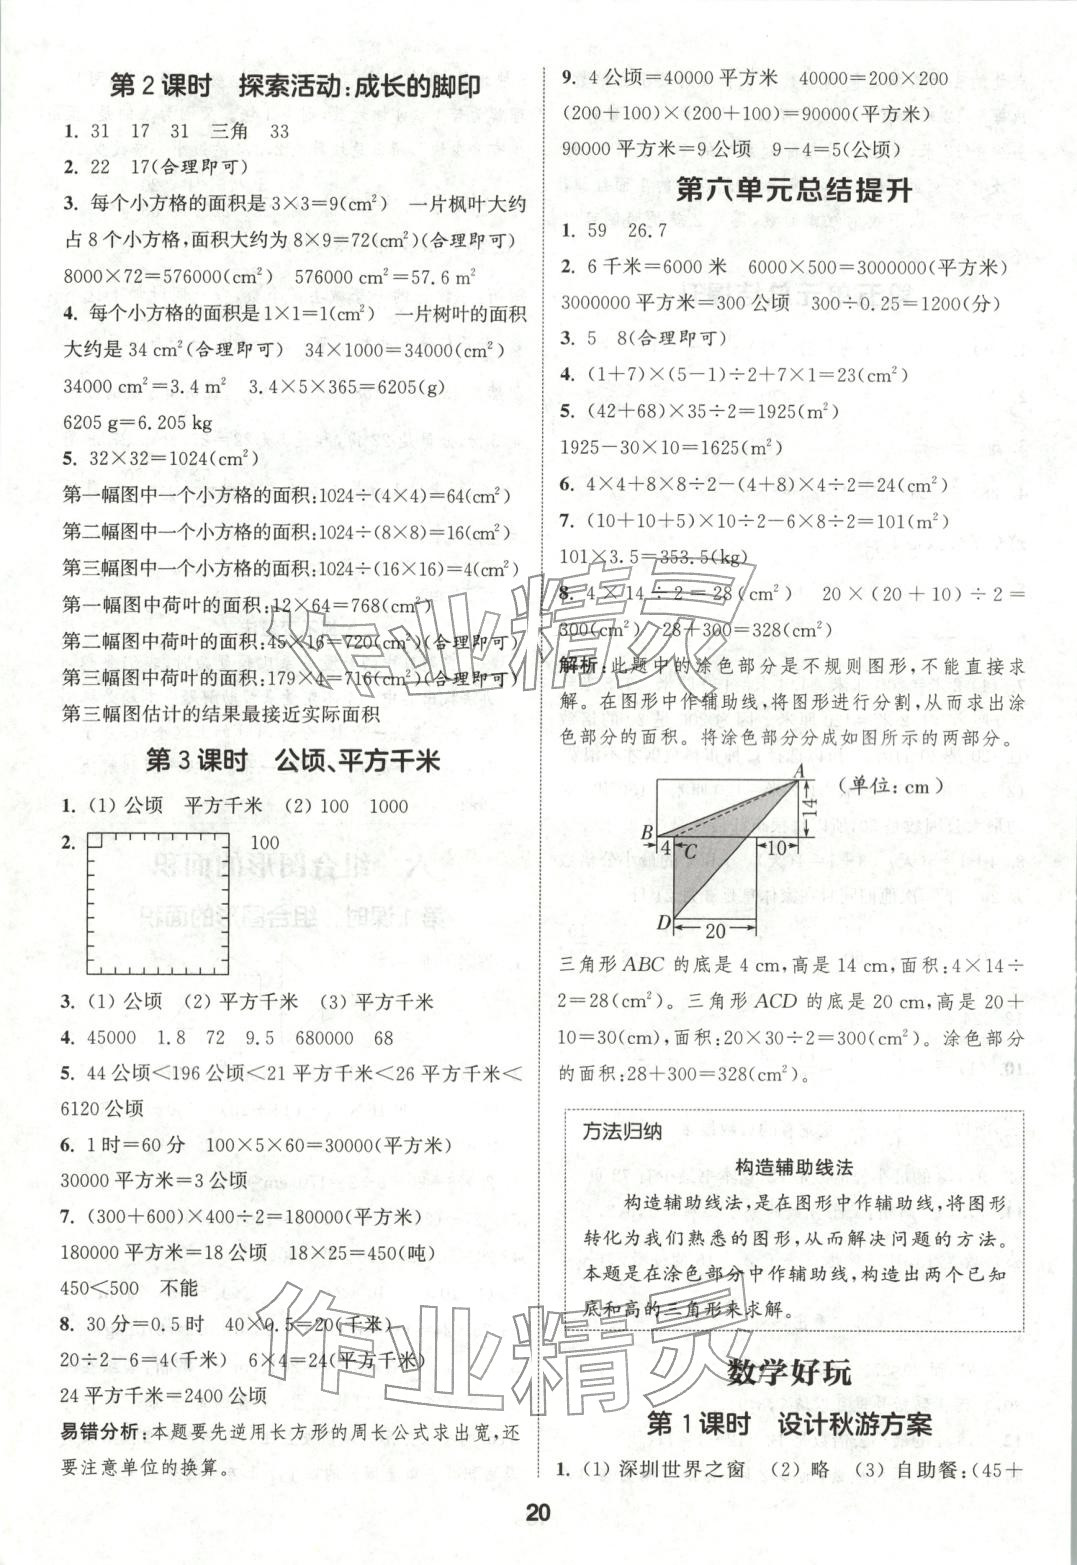 第2课时　探索活动:成长的脚印
1. 31　17　31　三角　33
2. 22　17(合理即可)
3. 每个小方格的面积是3×3=9(cm²)　一片枫叶大约
占8个小方格,面积大约为8×9=72(cm²)(合理即可)
8000×72=576000(cm²)　576000 cm²=57.6 m²
4. 每个小方格的面积是1×1=1(cm²)　一片树叶的面积
大约是34 cm²(合理即可)　34×1000=34000(cm²)
34000 cm²=3.4 m²　3.4×5×365=6205(g)
6205 g=6.205 kg
5. 32×32=1024(cm²)
第一幅图中一个小方格的面积:1024÷(4×4)=64(cm²)
第二幅图中一个小方格的面积:1024÷(8×8)=16(cm²)
第三幅图中一个小方格的面积:1024÷(16×16)=4(cm²)
第一幅图中荷叶的面积:12×64=768(cm²)
第二幅图中荷叶的面积:45×16=720(cm²)(合理即可)
第三幅图中荷叶的面积:179×4=716(cm²)
第三幅图估计的结果最接近实际面积
第3课时　公顷、平方千米
1. (1) 公顷　平方千米　(2) 100　1000
2.　100
3. (1) 公顷　(2) 平方千米　(3) 平方千米
4. 45000　1.8　72　9.5　680000　68
5. 44公顷<196公顷<21平方千米<26平方千米<
6120公顷
6. 1时=60分　100×5×60=30000(平方米)
30000平方米=3公顷
7. (300+600)×400÷2=180000(平方米)
180000平方米=18公顷　18×25=450(吨)
450<500　不能
8. 30分=0.5时　40×0.5=20(千米)
20÷2-6=4(千米)　6×4=24(平方千米)
24平方千米=2400公顷
易错分析:本题要先逆用长方形的周长公式求出宽,还
要注意单位的换算。
9. 4公顷=40000平方米　40000=200×200
(200+100)×(200+100)=90000(平方米)
90000平方米=9公顷　9-4=5(公顷)
第六单元总结提升
1. 59　26.7
2. 6千米=6000米　6000×500=3000000(平方米)
3000000平方米=300公顷　300÷0.25=1200(分)
3. 5　8(合理即可)
4. (1+7)×(5-1)÷2+7×1=23(cm²)
5. (42+68)×35÷2=1925(m²)
1925-30×10=1625(m²)
6. 4×4+8×8÷2-(4+8)×4÷2=24(cm²)
7. (10+10+5)×10÷2-6×8÷2=101(m²)
101×3.5=353.5(kg)
8. 4×14÷2=28(cm²)　20×(20+10)÷2=
300(cm²)　28+300=328(cm²)
解析:此题中的涂色部分是不规则图形,不能直接求
解。在图形中作辅助线,将图形进行分割,从而求出涂
色部分的面积。将涂色部分分成如图所示的两部分。
A
(单位:cm)
14
B
4
C
10
D
20
三角形ABC的底是4 cm,高是14 cm,面积:4×14÷
2=28(cm²)。三角形ACD的底是20 cm,高是20+
10=30(cm),面积:20×30÷2=300(cm²)。涂色部分
的面积:28+300=328(cm²)。
方法归纳
构造辅助线法
构造辅助线法,是在图形中作辅助线,将图形
转化为我们熟悉的图形,从而解决问题的方法。
本题是在涂色部分中作辅助线,构造出两个已知
底和高的三角形来求解。
数学好玩
第1课时　设计秋游方案
1. (1) 深圳世界之窗　(2) 略　(3) 自助餐:(45+
20
作业精灵
作业精灵